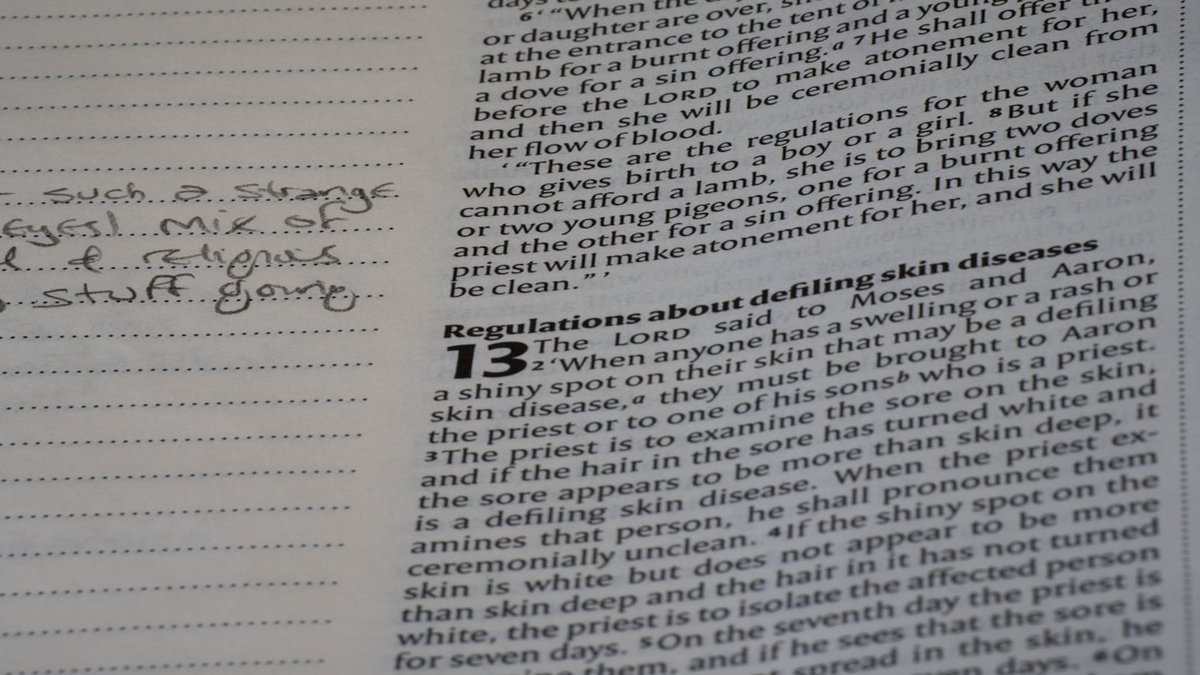 such a strange
eyes) mix of
& religious
stuff going
days to
6‘ “When the
or daughter are over, she
at the entrance to the tent of
lamb for a burnt offering and a young
a dove for a sin offering.a 7He shall offer
before the LORD to make atonement for her,
and then she will be ceremonially clean from
her flow of blood.
‘ “These are the regulations for the woman
who gives birth to a boy or a girl. 8But if she
cannot afford a lamb, she is to bring two doves
or two young pigeons, one for a burnt offering
and the other for a sin offering. In this way the
priest will make atonement for her, and she will
be clean.” ’
Regulations about defiling skin diseases
13 The LORD said to Moses and Aaron,
2‘When anyone has a swelling or a rash or
a shiny spot on their skin that may be a defiling
skin disease,a they must be brought to Aaron
the priest or to one of his sonsb who is a priest.
3The priest is to examine the sore on the skin,
and if the hair in the sore has turned white and
the sore appears to be more than skin deep, it
is a defiling skin disease. When the priest ex-
amines that person, he shall pronounce them
ceremonially unclean. 4If the shiny spot on the
skin is white but does not appear to be more
than skin deep and the hair in it has not turned
white, the priest is to isolate the affected person
for seven days. 5On the seventh day the priest is
them, and if he sees that the sore is
spread in the skin, he
days. 6On